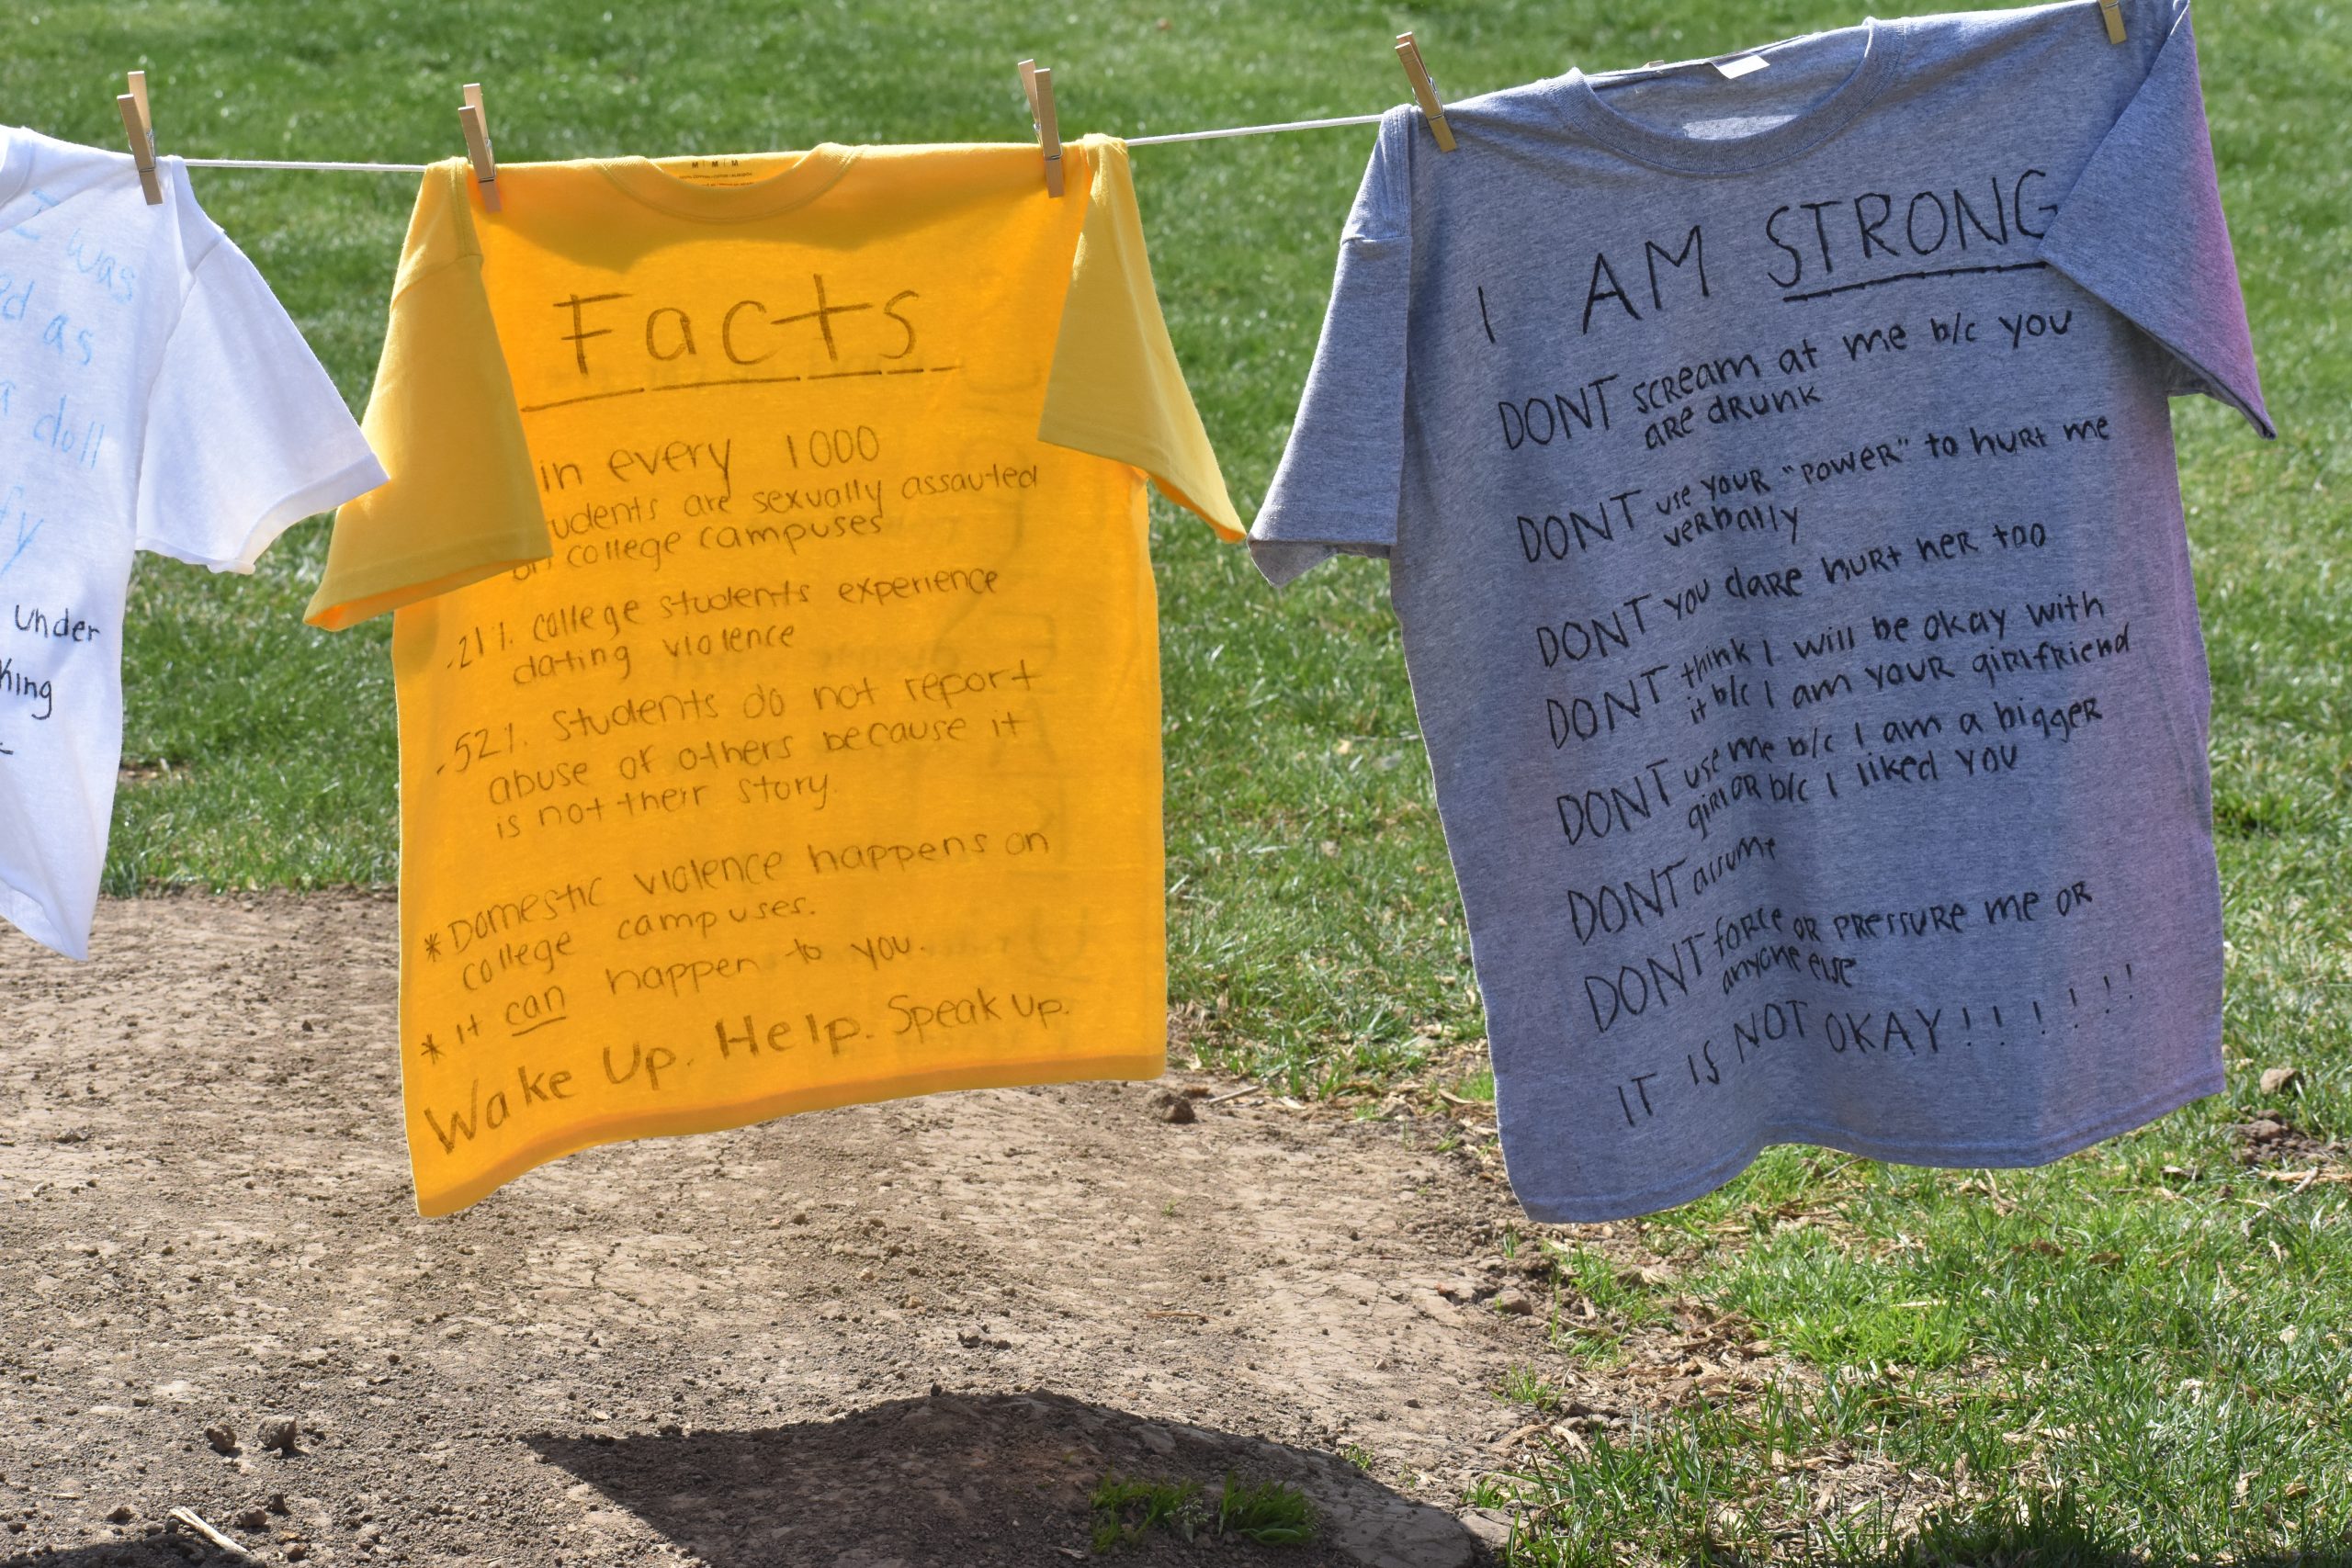 I was
ed as
a doll
fy
under
king
M M M
Facts
in every 1000
udents are sexually assaulted
on college campuses
-21% college students experience
dating violence
-52% students do not report
abuse of others because it
is not their story.
*Domestic violence happens on
college campuses.
*it can happen to you.
Wake Up. Help. Speak up.
I AM STRONG
DONT scream at me b/c you
are drunk
DONT use your "power" to hurt me
verbally
DONT you dare hurt her too
DONT think I will be okay with
it b/c I am your girlfriend
DONT use me b/c I am a bigger
girl or b/c I liked you
DONT assume
DONT force or pressure me or
anyone else
IT IS NOT OKAY!!!!!!